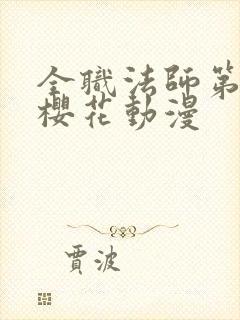 全職法師第
櫻花動漫
賈波